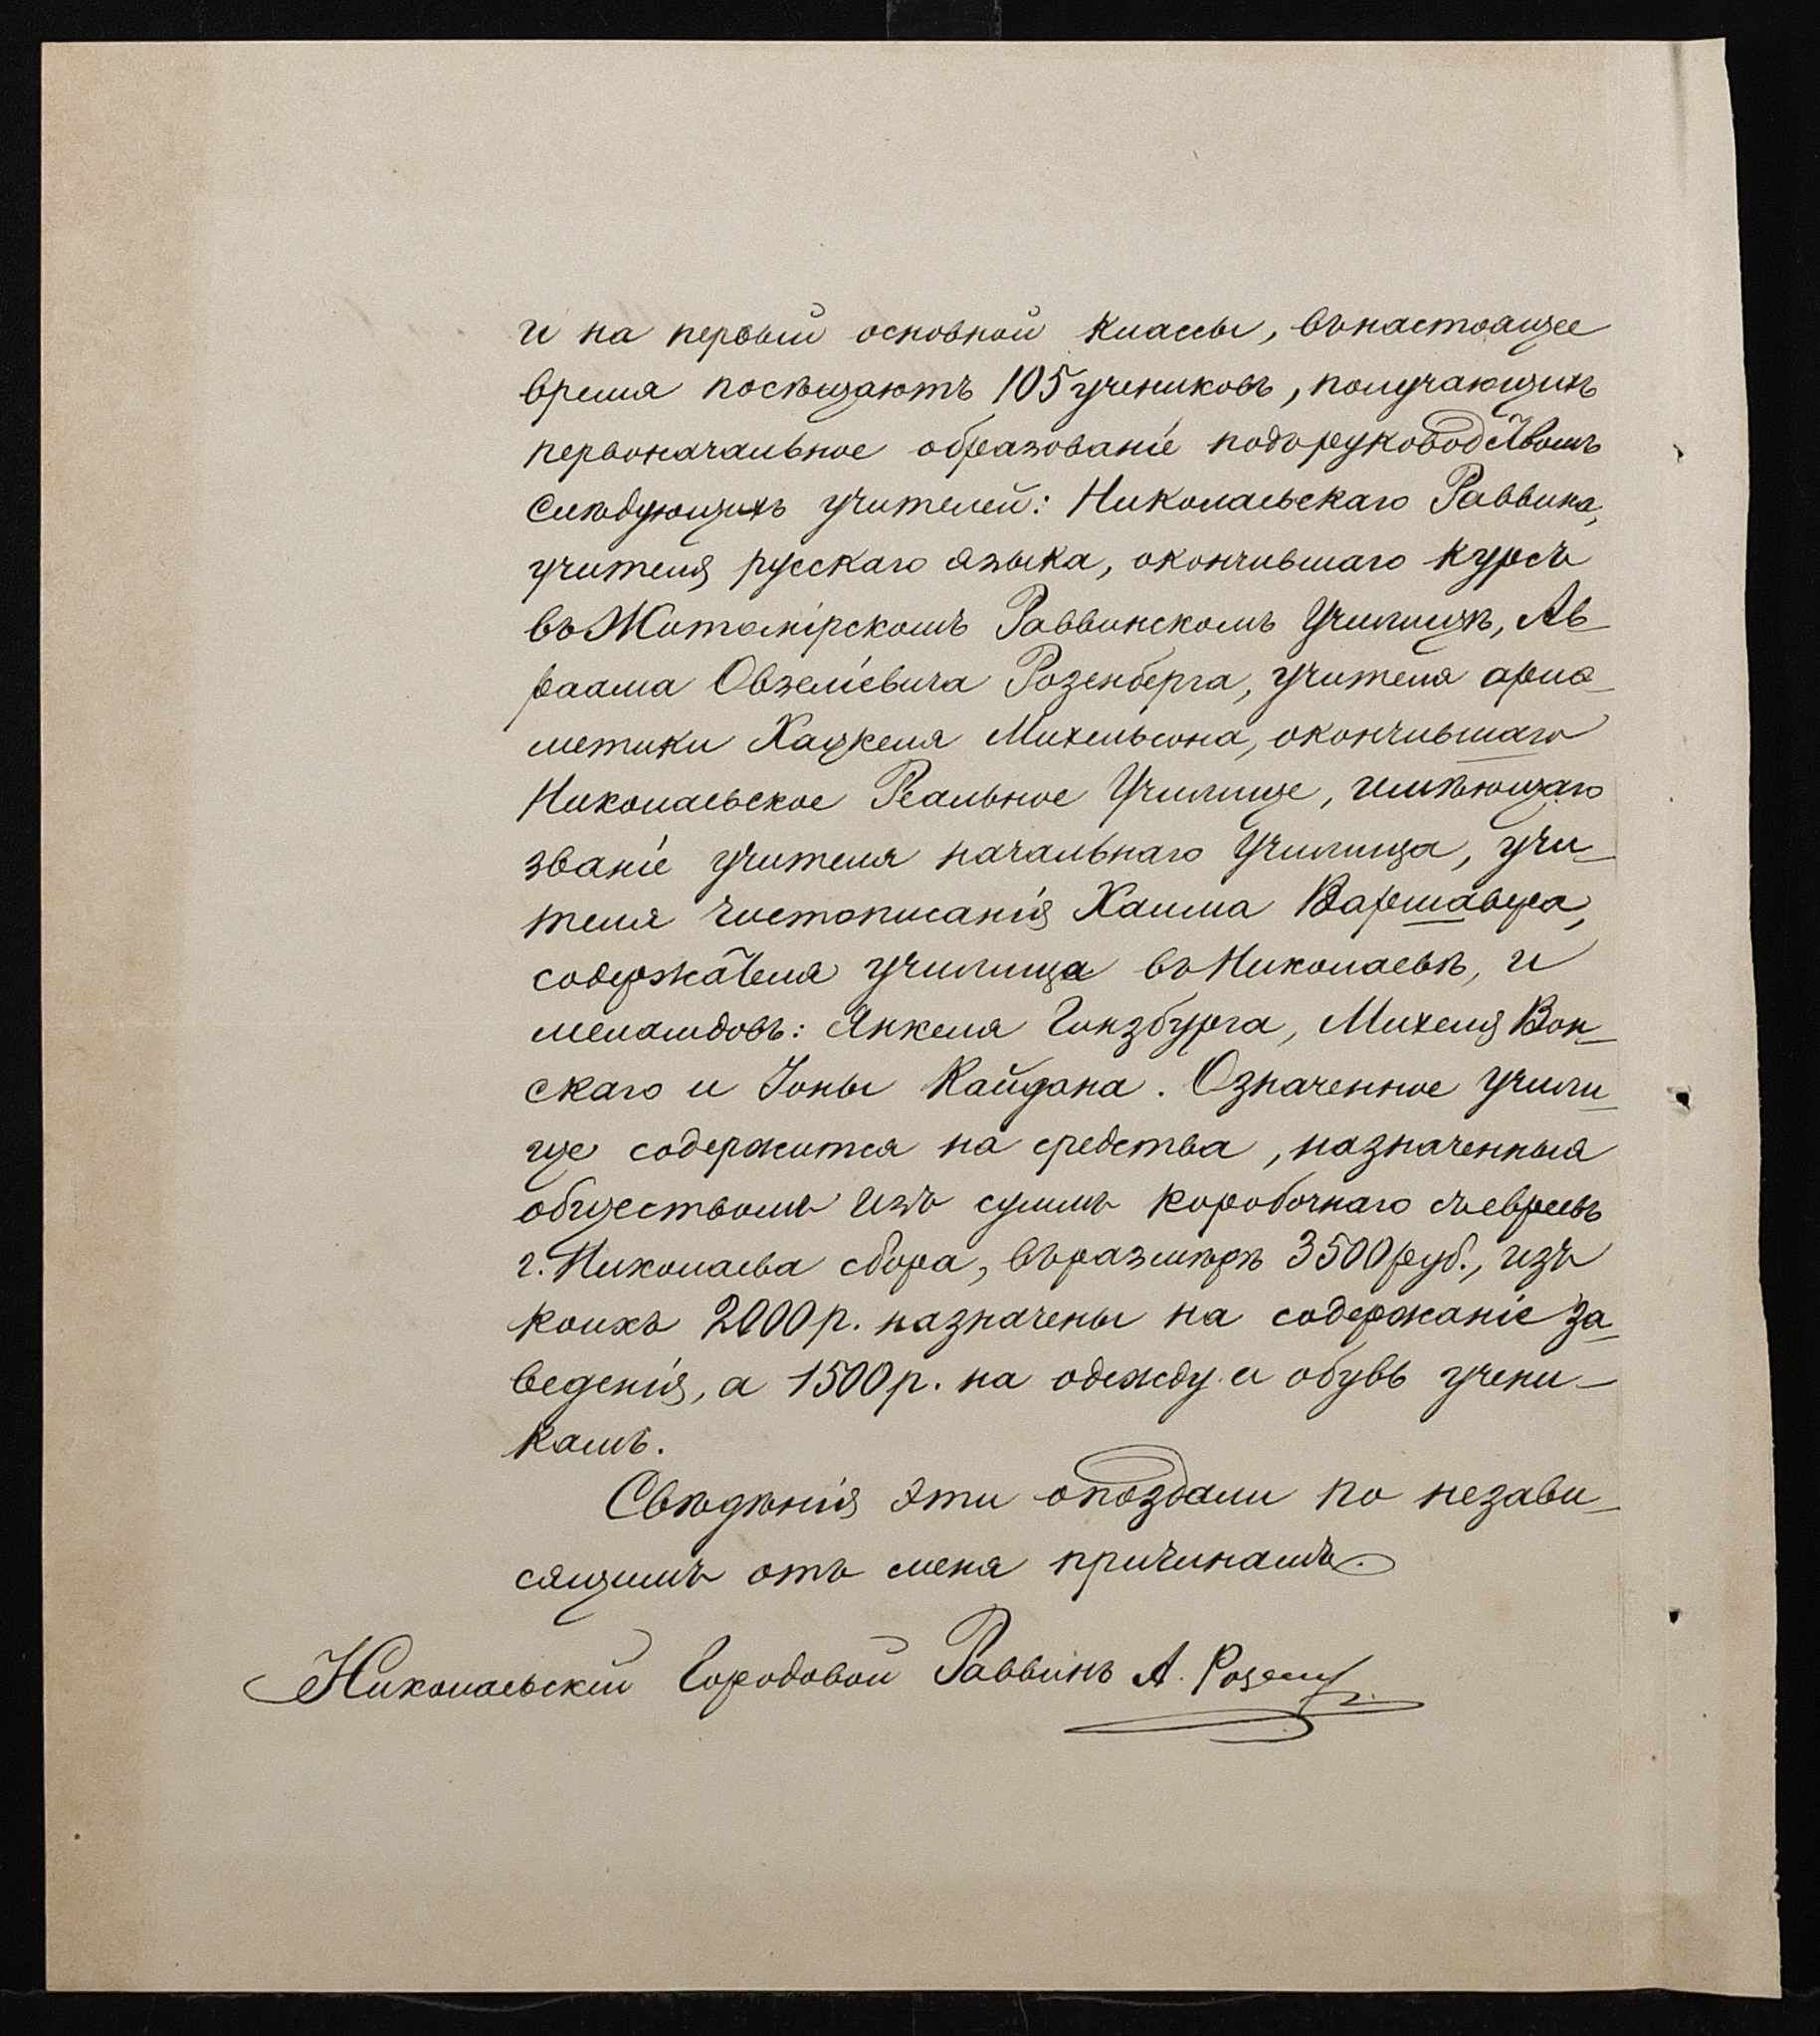 и на первый основной классы, въ настоящее
время посѣщаютъ 105 учениковъ, получающихъ
первоначальное образованіе подъ руководствомъ
слѣдующихъ учителей: Николаевскаго Раввина,
учителя русскаго языка, окончившаго курсъ
въ Житомірскомъ Раввинскомъ Училищѣ, Ав-
раама Овзеліевича Розенберга, учителя ариѳ-
метики Хацкеля Михельсона, окончившаго
Николаевское Реальное Училище, имѣющаго
званіе учителя начальнаго Училища, учи-
теля чистописанія Хаима Варшавера,
содержателя училища въ Николаевѣ, и
меламдовъ: Янкеля Гинзбурга, Михеля Вон-
скаго и Іоны Кайдана. Означенное учили-
ще содержится на средства, назначенныя
обществомъ изъ суммъ коробочнаго съ евреевъ
г. Николаева сбора, въ размѣрѣ 3500 руб., изъ
коихъ 2000 р. назначены на содержаніе за-
веденія, а 1500 р. на одежду и обувь учени-
камъ.
Свѣдѣнія эти опоздали по незави-
сящимъ отъ меня причинамъ.
Николаевскій Городовой Раввинъ А.